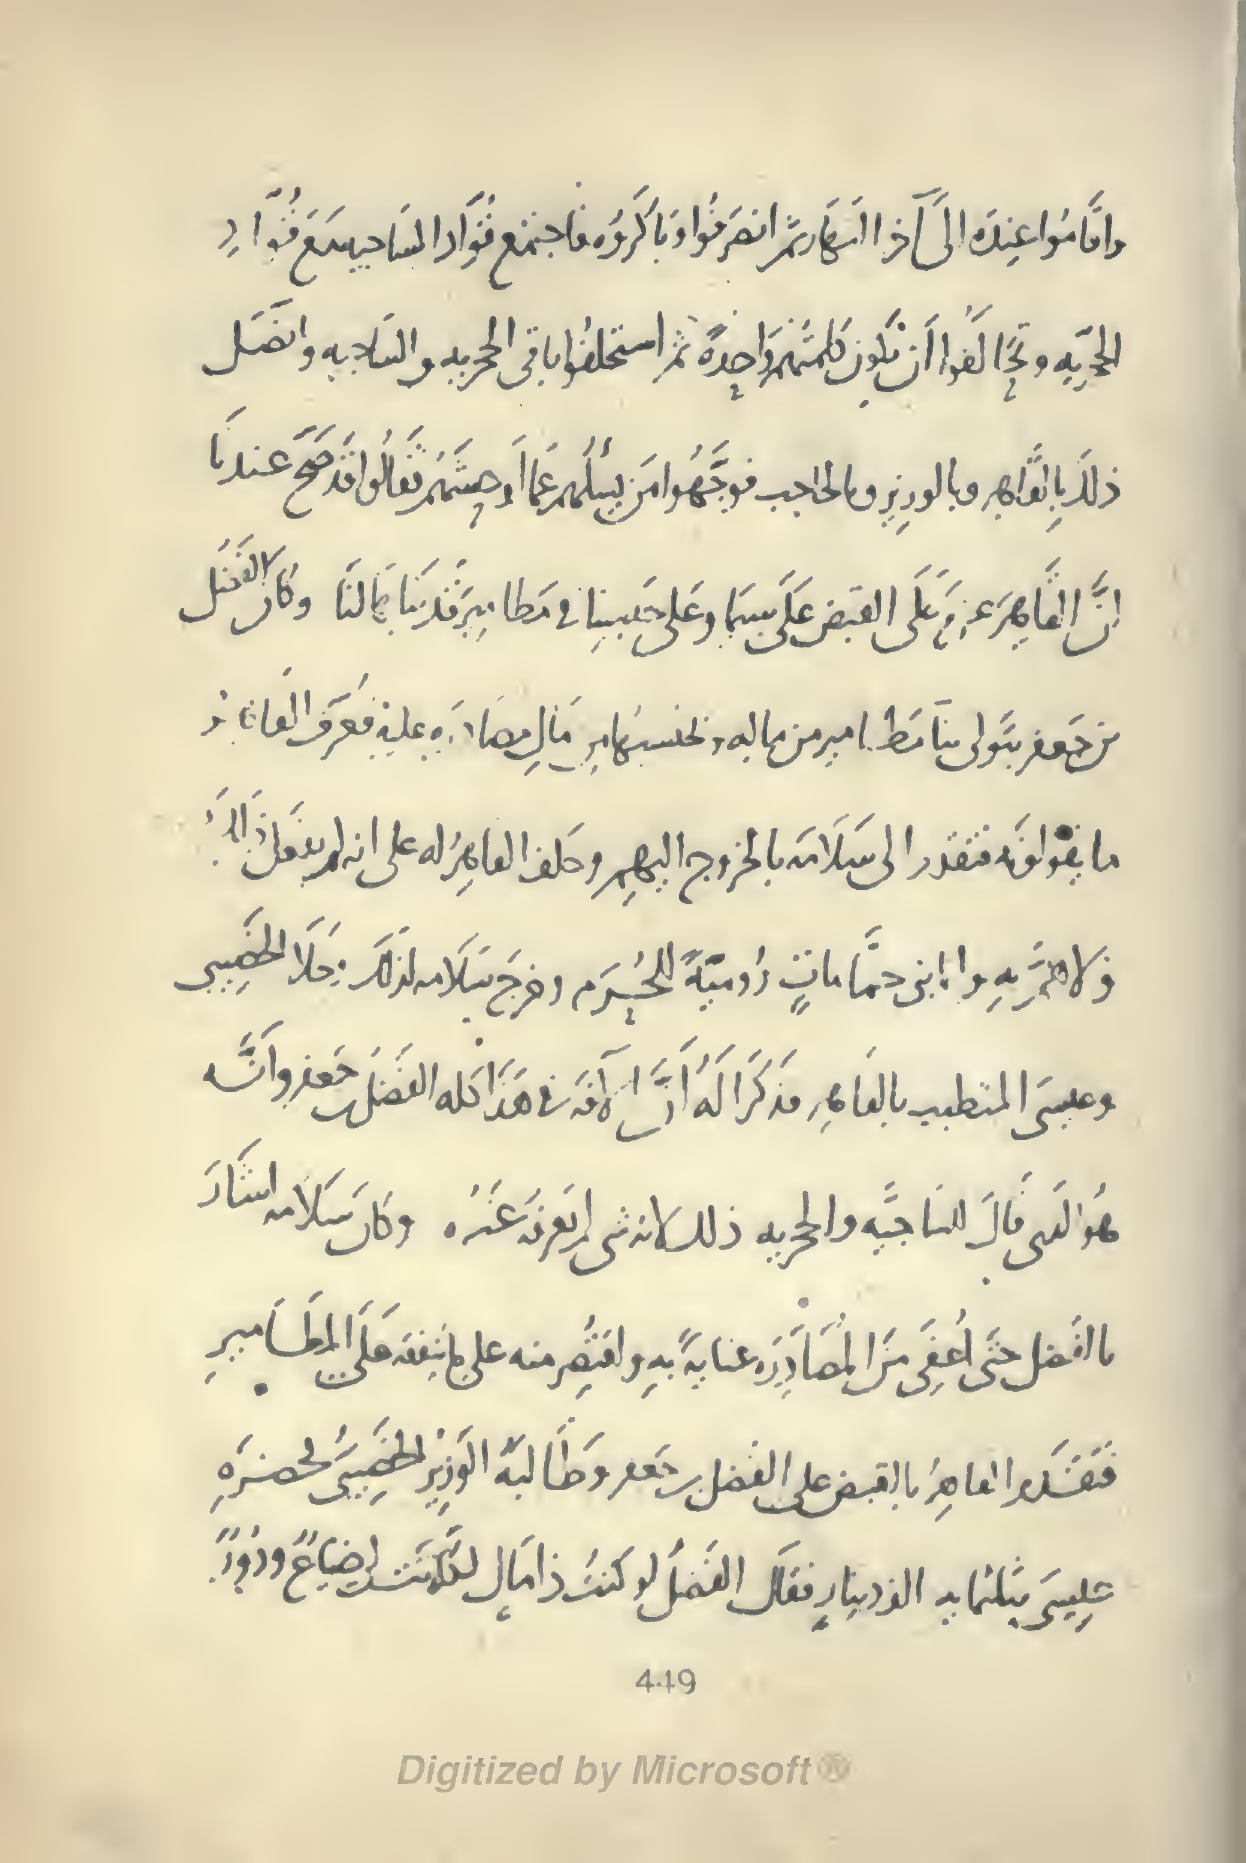 واقَامُوا عِندَه الىَ آخر النهَار ثمَّ انصَرفُوا وَبَاكَرُوه فاجتمع قُوَّاد السَاجيه مَع قُوّادِ
الحجريّه وتحَالَفُوا اَن تكون كلمتُهم وَاحِدةً ثم استحلفُوا باقى الحجريه والساجيه واتصَل
ذلكَ بالقَاهِر وبالوزِيرِ وبالحاجب فوَجَّهُوا مَن يسئلُهم عَمّا اَوحشَهُم فقالُوا قَد صَحّ عندنَا
انَّ القَاهِرَ عزمَ عَلَى القبَض عَلَى سِيمَا وعَلى حَبسِنا فى مَطامِيرَ قَد بنَاها لنَا وكانَ الفَضلُ
بن جَعفر يتَولى بنآ مَطامير من ماله وتحتسب بهَا من مَالِ مصَادَرَه عليه فعرفَ القاهر
ما يقولونه فتقدر الى سَلَامَه بالخروج اليهم وحَلف القاهرُ له على انه لم يفعَل ذَالكَ
وَلا همَّ بهِ وانما بنى حمَّاماتٍ رُوميّةً للحُرَم وخرجَ سَلَامه لذلكَ وخلَا الخصِيبى
وعيسَى المتطبب بالقاهِر فذكَرَا لَهُ اَنَّ الآفَه فى هَذَا كله الفضَل بن جَعفر وانَّه
هُوَ الذى قالَ للسَاجيَّه والحجريه ذلك لانه شى لم يَعرفه غَيرُه وكانَ سَلَامه اشَارَ
بالفَضل حتَى اُعفِىَ مَن المُصَادَرَه عنايةً بهِ واقتُصِر منه على مانفقه عَلَى المطَامير
فتَقَدم القاهِرُ بالقبض على الفضل بن جَعفر وَطَالبَهُ الوَزيرُ الخصِيبىُّ بحضرَهِ
عيسَى بثلثمايه الف دينارٍ فقَالَ الفَضلُ لو كنتُ ذا مَالٍ لكَانَت لى ضياعٌ ودُورٌ
449
Digitized by Microsoft®